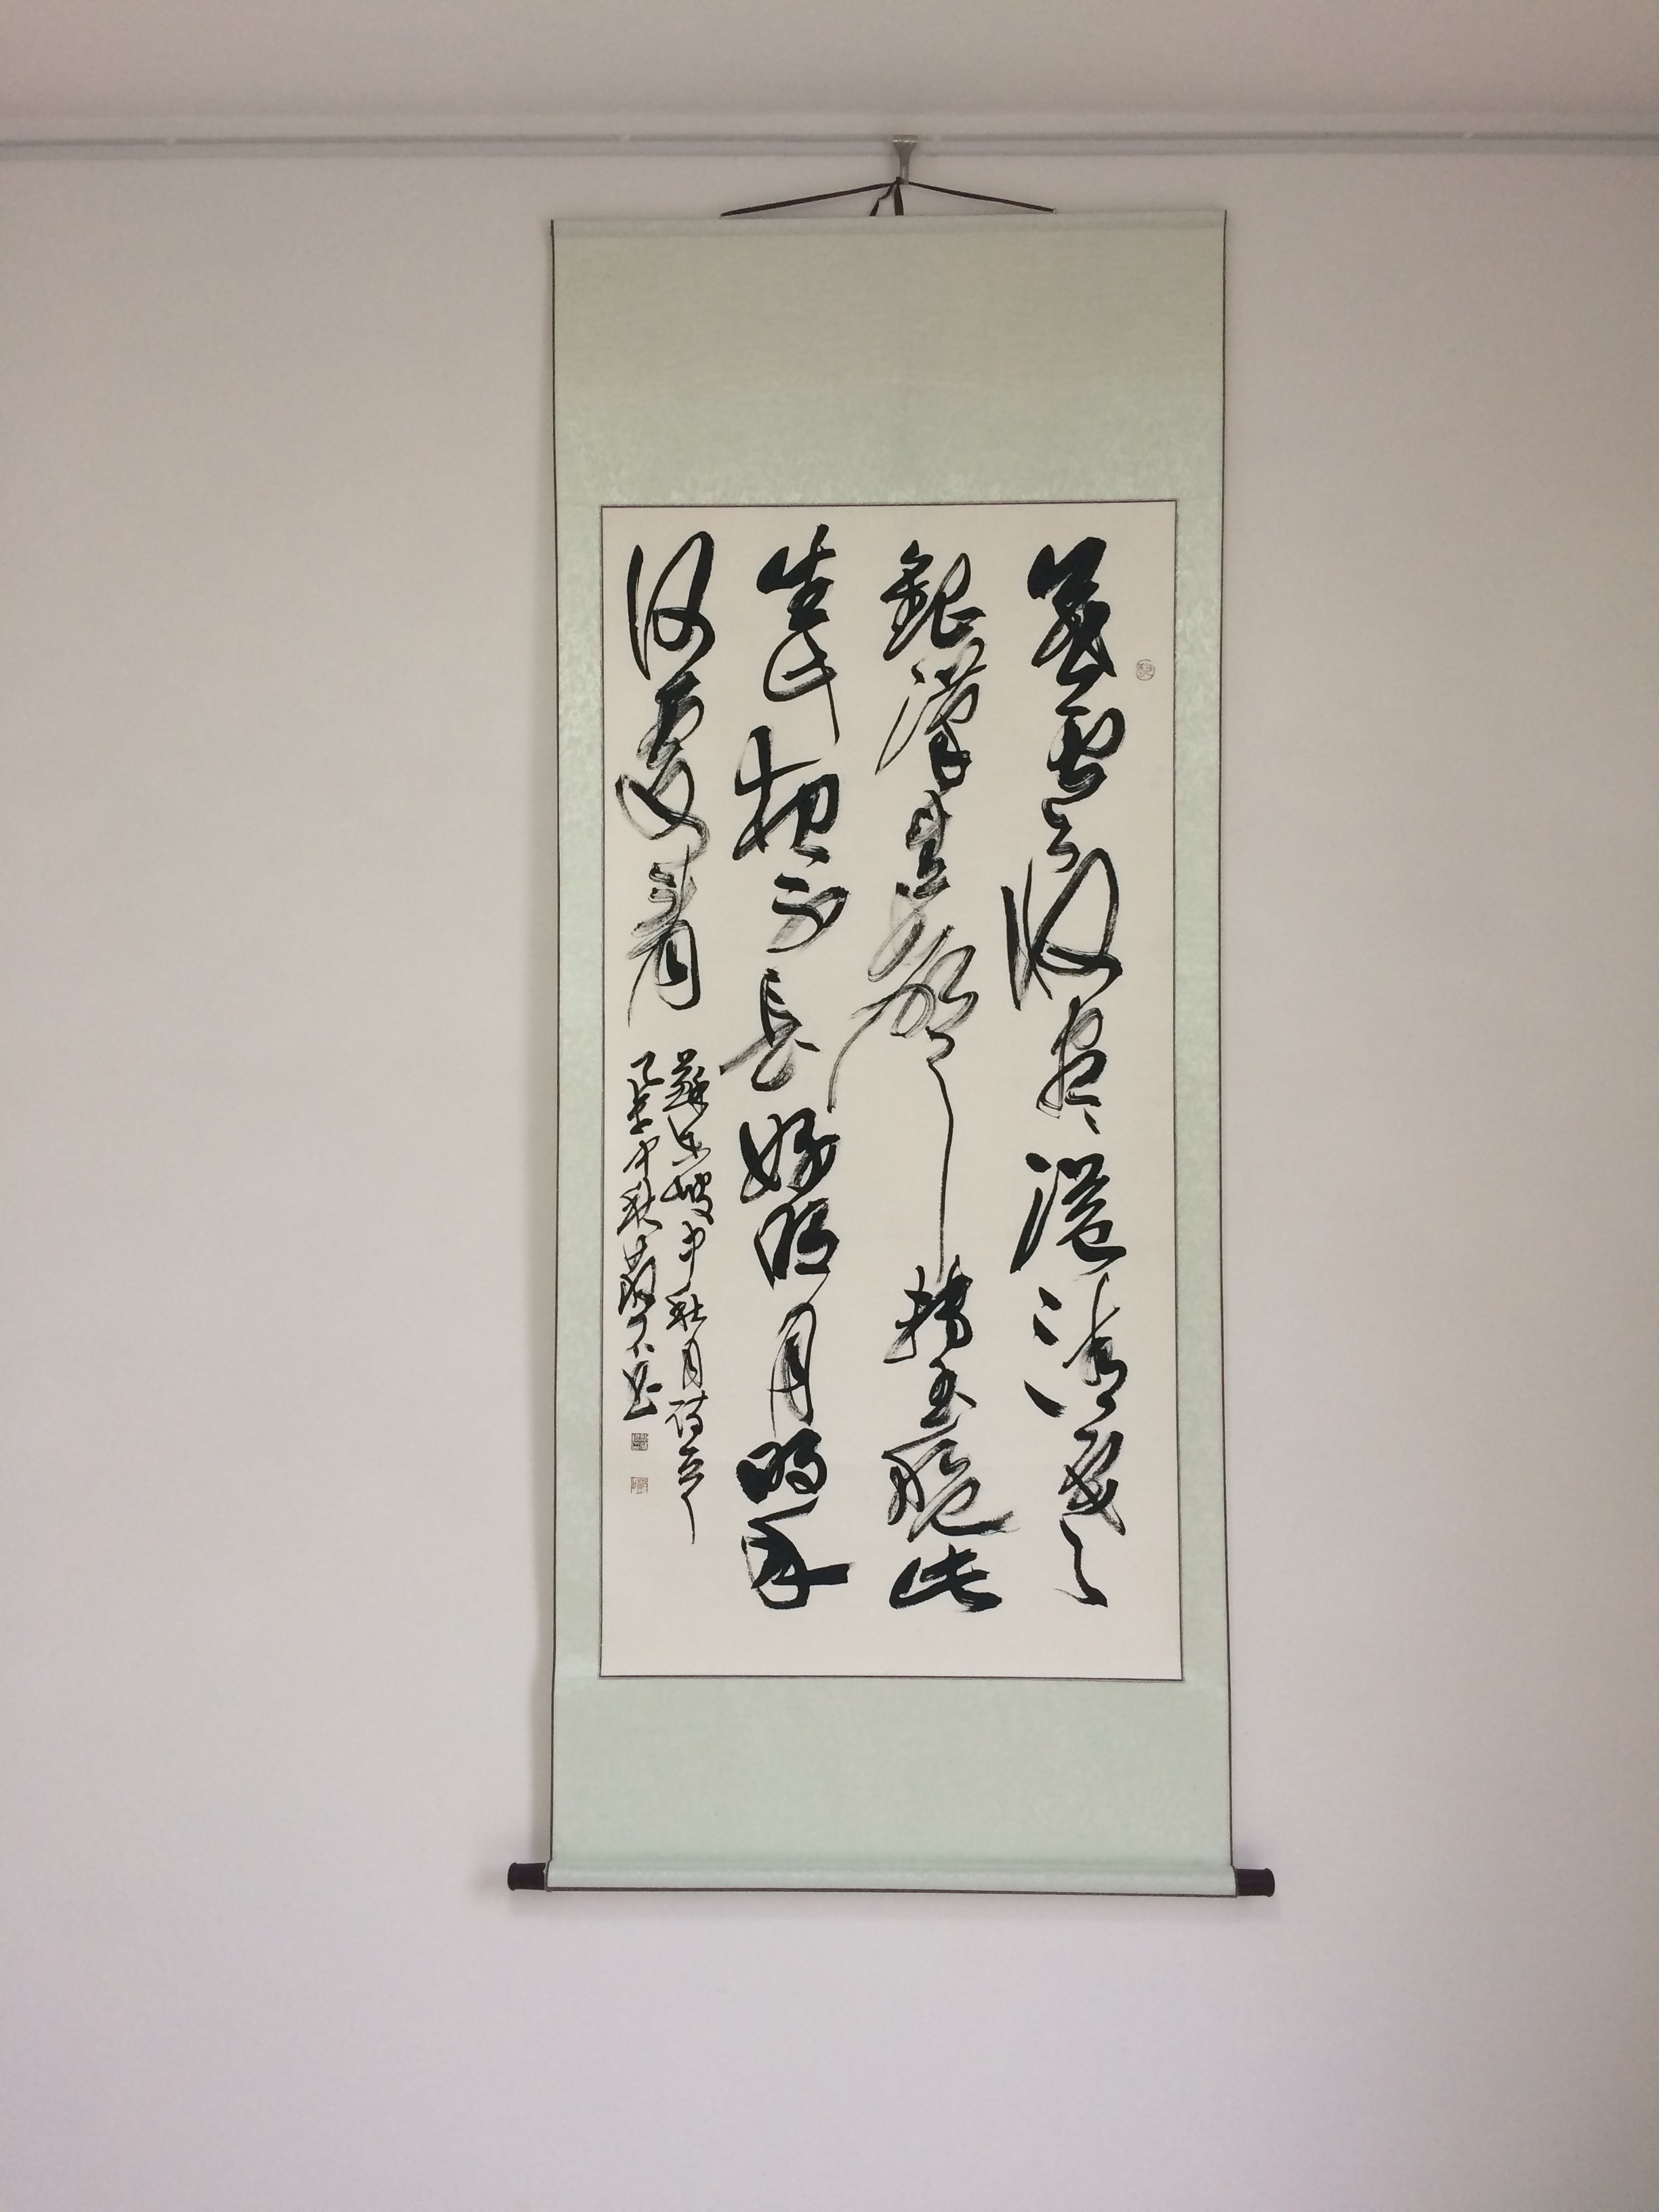 暮雲收盡溢清寒
銀漢無聲轉玉盤此
生此夜不長好明月明年
何處看
蘇東坡中秋月詩
中秋